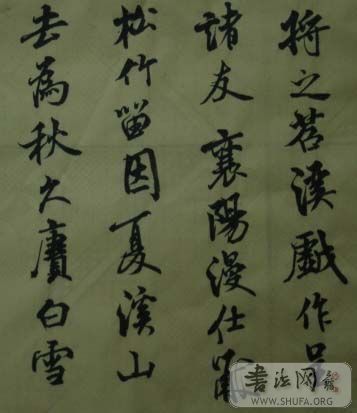 將之苕溪戲作呈
諸友 襄陽漫仕黻
松竹留因夏溪山
去為秋久賡白雪
书法网
WWW.SHUFA.ORG